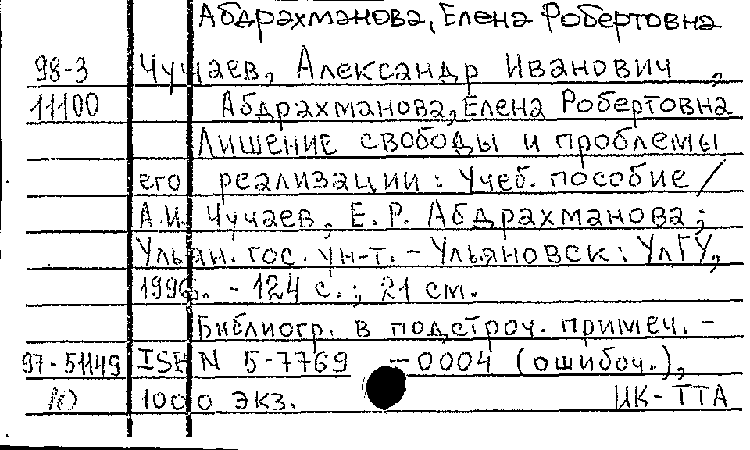 Абдрахманова, Елена Робертовна
98-3 Чучаев, Александр Иванович,
11100 Абдрахманова, Елена Робертовна
Лишение свободы и проблемы
его реализации: Учеб. пособие /
А.И. Чучаев, Е.Р. Абдрахманова;
Ульян. гос. ун-т. - Ульяновск: УлГУ,
1996. - 124 с.; 21 см.
Библиогр. в подстроч. примеч. -
97-51149 ISBN 5-7769 -0004 (ошибоч.),
1000 экз. ИК-ТТА